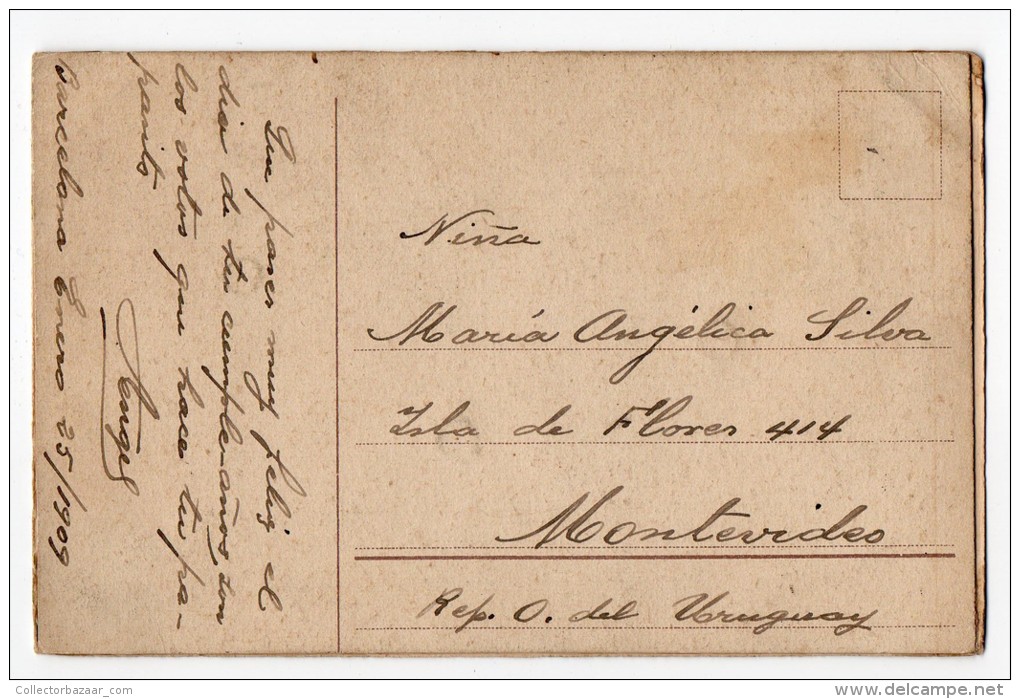 Que pases muy feliz el
dia de tu cumpleaños, son
los votos que hace tu pa-
pasito
Barcelona Enero 25/1909
Niña
María Angélica Silva
Isla de Flores 414
Montevideo
Rep. O. del Uruguay
Collectorbazaar_com/
delcampe.net